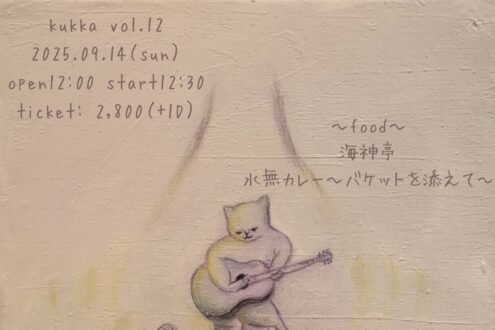 kukka vol.12
2025.09.14(sun)
open12:00 start12:30
ticket: 2,800(+1D)
～food～
海神亭
水無カレー～バケットを添えて～